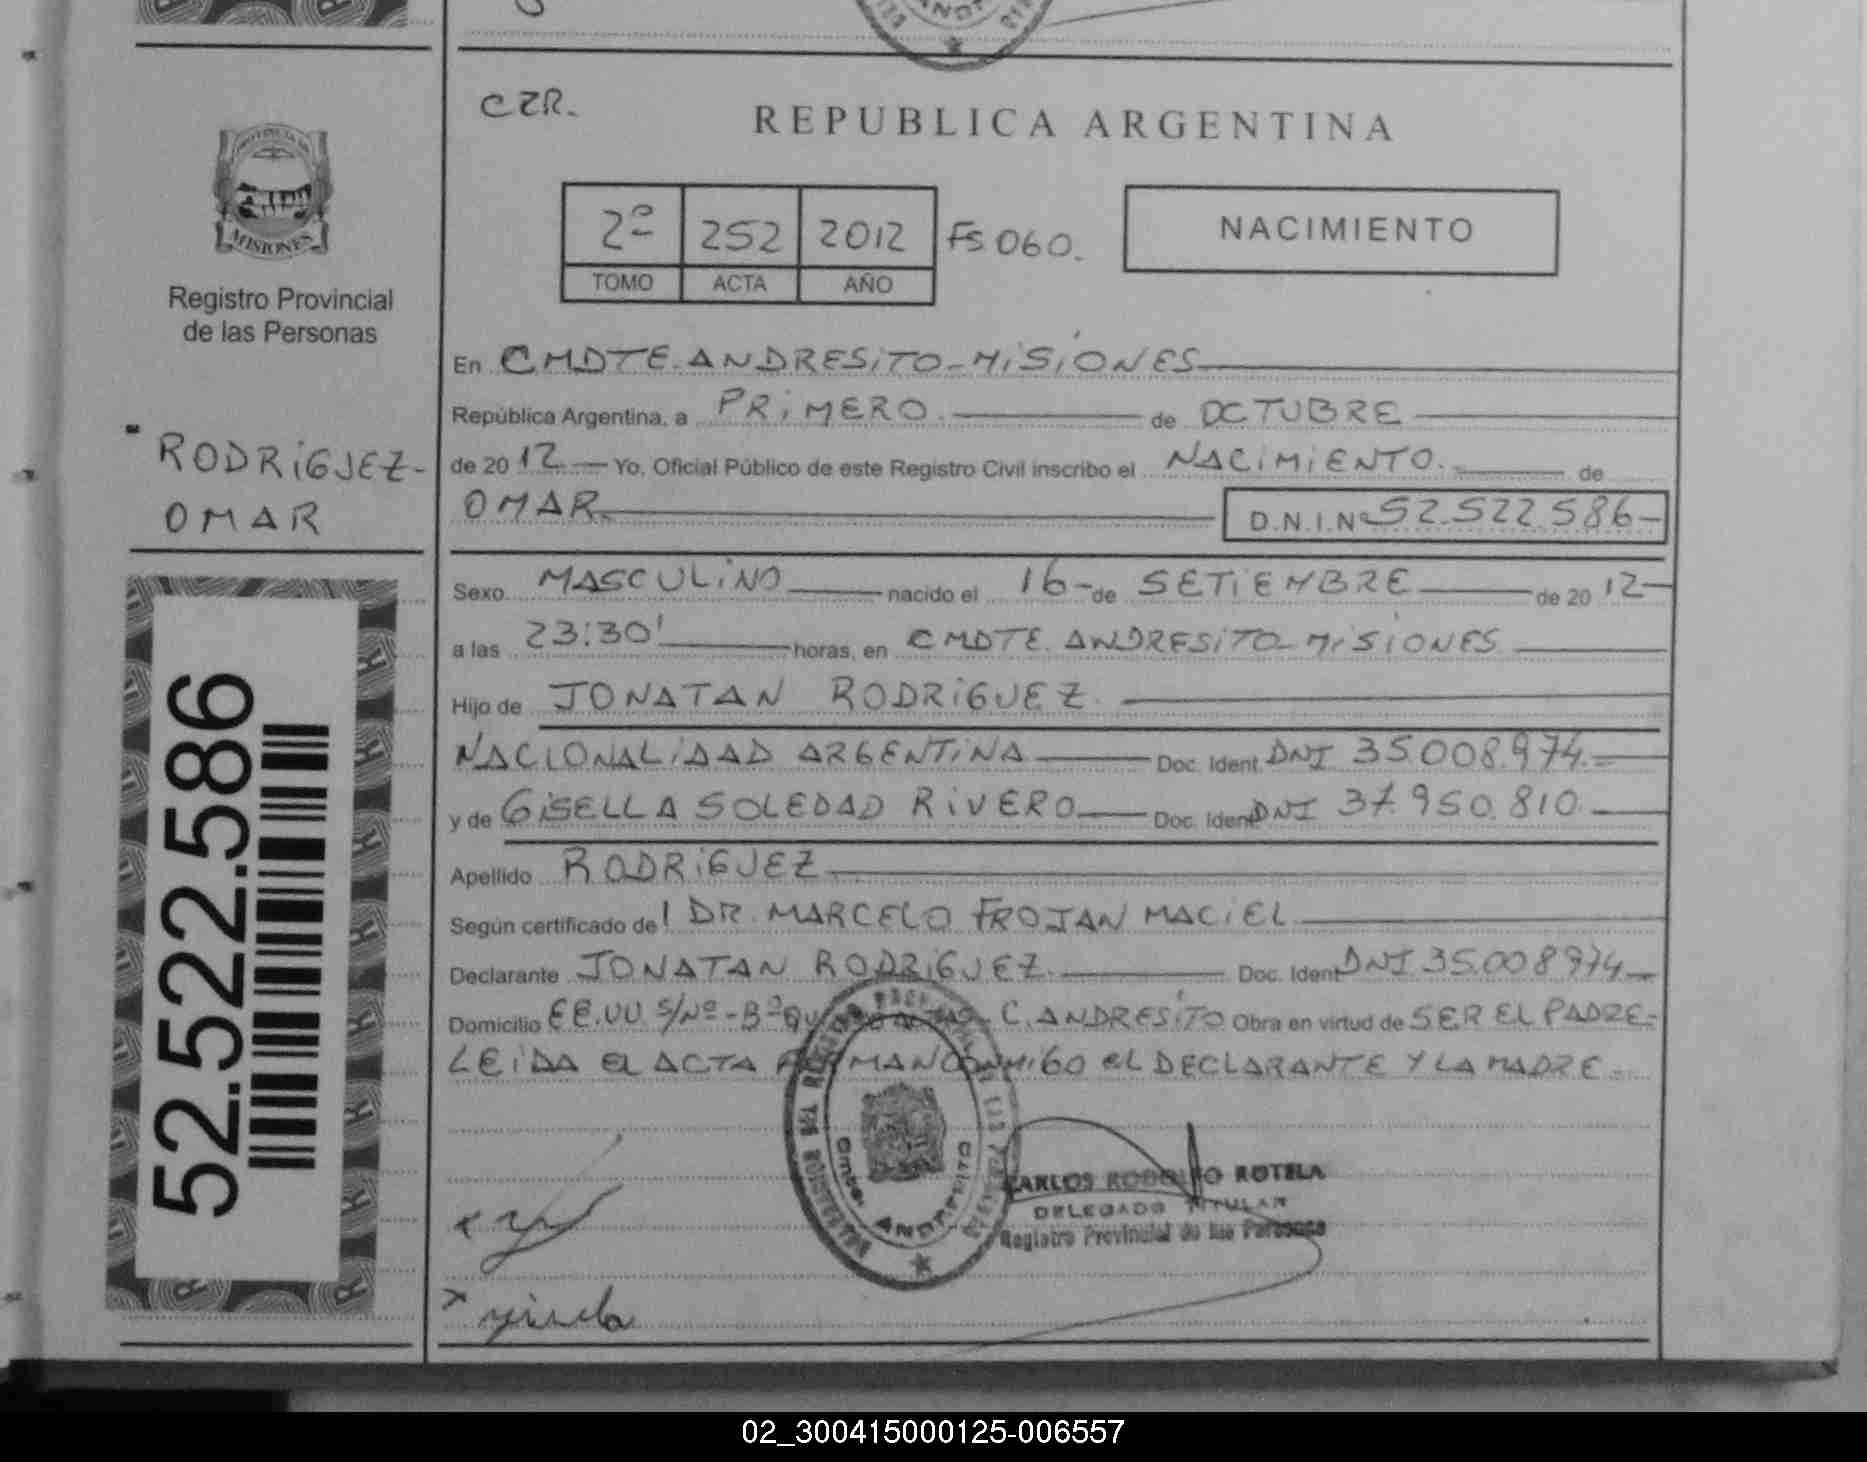 CZR.
REPUBLICA ARGENTINA
2º 252 2012 FS 060.
TOMO ACTA AÑO
NACIMIENTO
MISIONES
Registro Provincial
de las Personas
RODRIGUEZ-
OMAR
52.522.586
En CMDTE. ANDRESITO - MISIONES
República Argentina, a PRIMERO. de OCTUBRE
de 2012 Yo, Oficial Público de este Registro Civil inscribo el NACIMIENTO. de
OMAR D.N.I.Nº 52.522.586-
Sexo MASCULINO nacido el 16 - de SETIEMBRE de 2012
a las 23:30' horas, en CMDTE. ANDRESITO - MISIONES
Hijo de JONATAN RODRIGUEZ.
NACIONALIDAD ARGENTINA Doc. Ident. DNI 35.008.974.-
y de GISELLA SOLEDAD RIVERO Doc. Ident. DNI 37.950.810
Apellido RODRIGUEZ
Según certificado del DR. MARCELO FROJAN MACIEL
Declarante JONATAN RODRIGUEZ. Doc. Ident. DNI 35.008974
Domicilio EE.UU S/Nº - Bº C. ANDRESITO Obra en virtud de SER EL PADRE-
LEIDA EL ACTA FIRMAN CONMIGO EL DECLARANTE Y LA MADRE -
Cmte. ANDRESITO
CARLOS RODOLFO ROTELA
DELEGADO TITULAR
Registro Provincial de las Personas
02_300415000125-006557